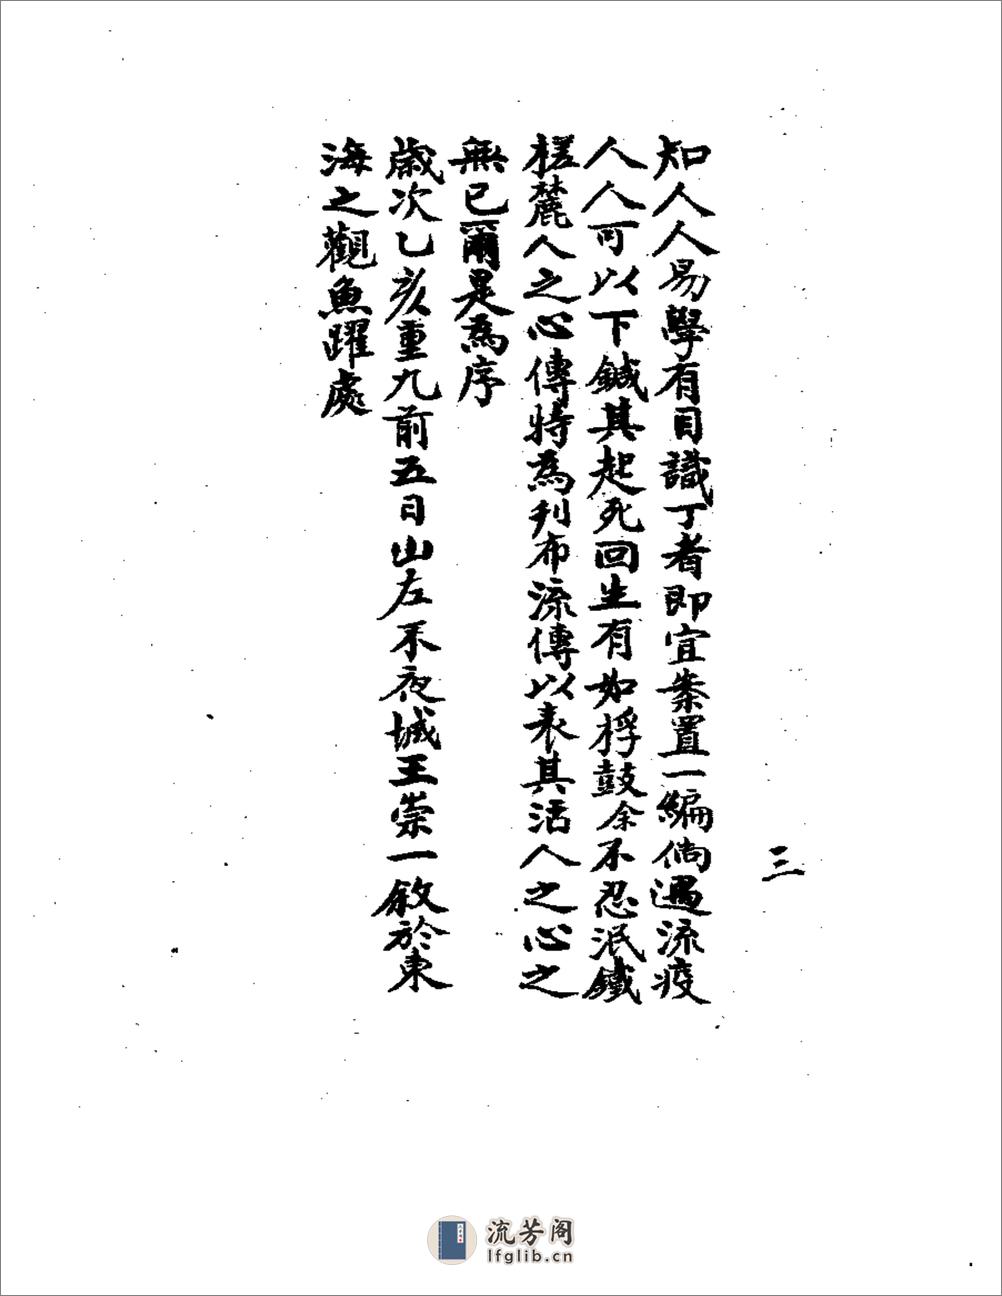 三
知人人易學有目識丁者即宜案置一編倘遇流疫
人人可以下鍼其起死回生有如桴鼓余不忍泯鐵
槎麓人之心傳特為刋布流傳以表其活人之心之
無已爾是為序
歲次乙亥重九前五日山左不夜城王崇一敘於東
海之觀魚躍處
流芳阁
lfglib.cn